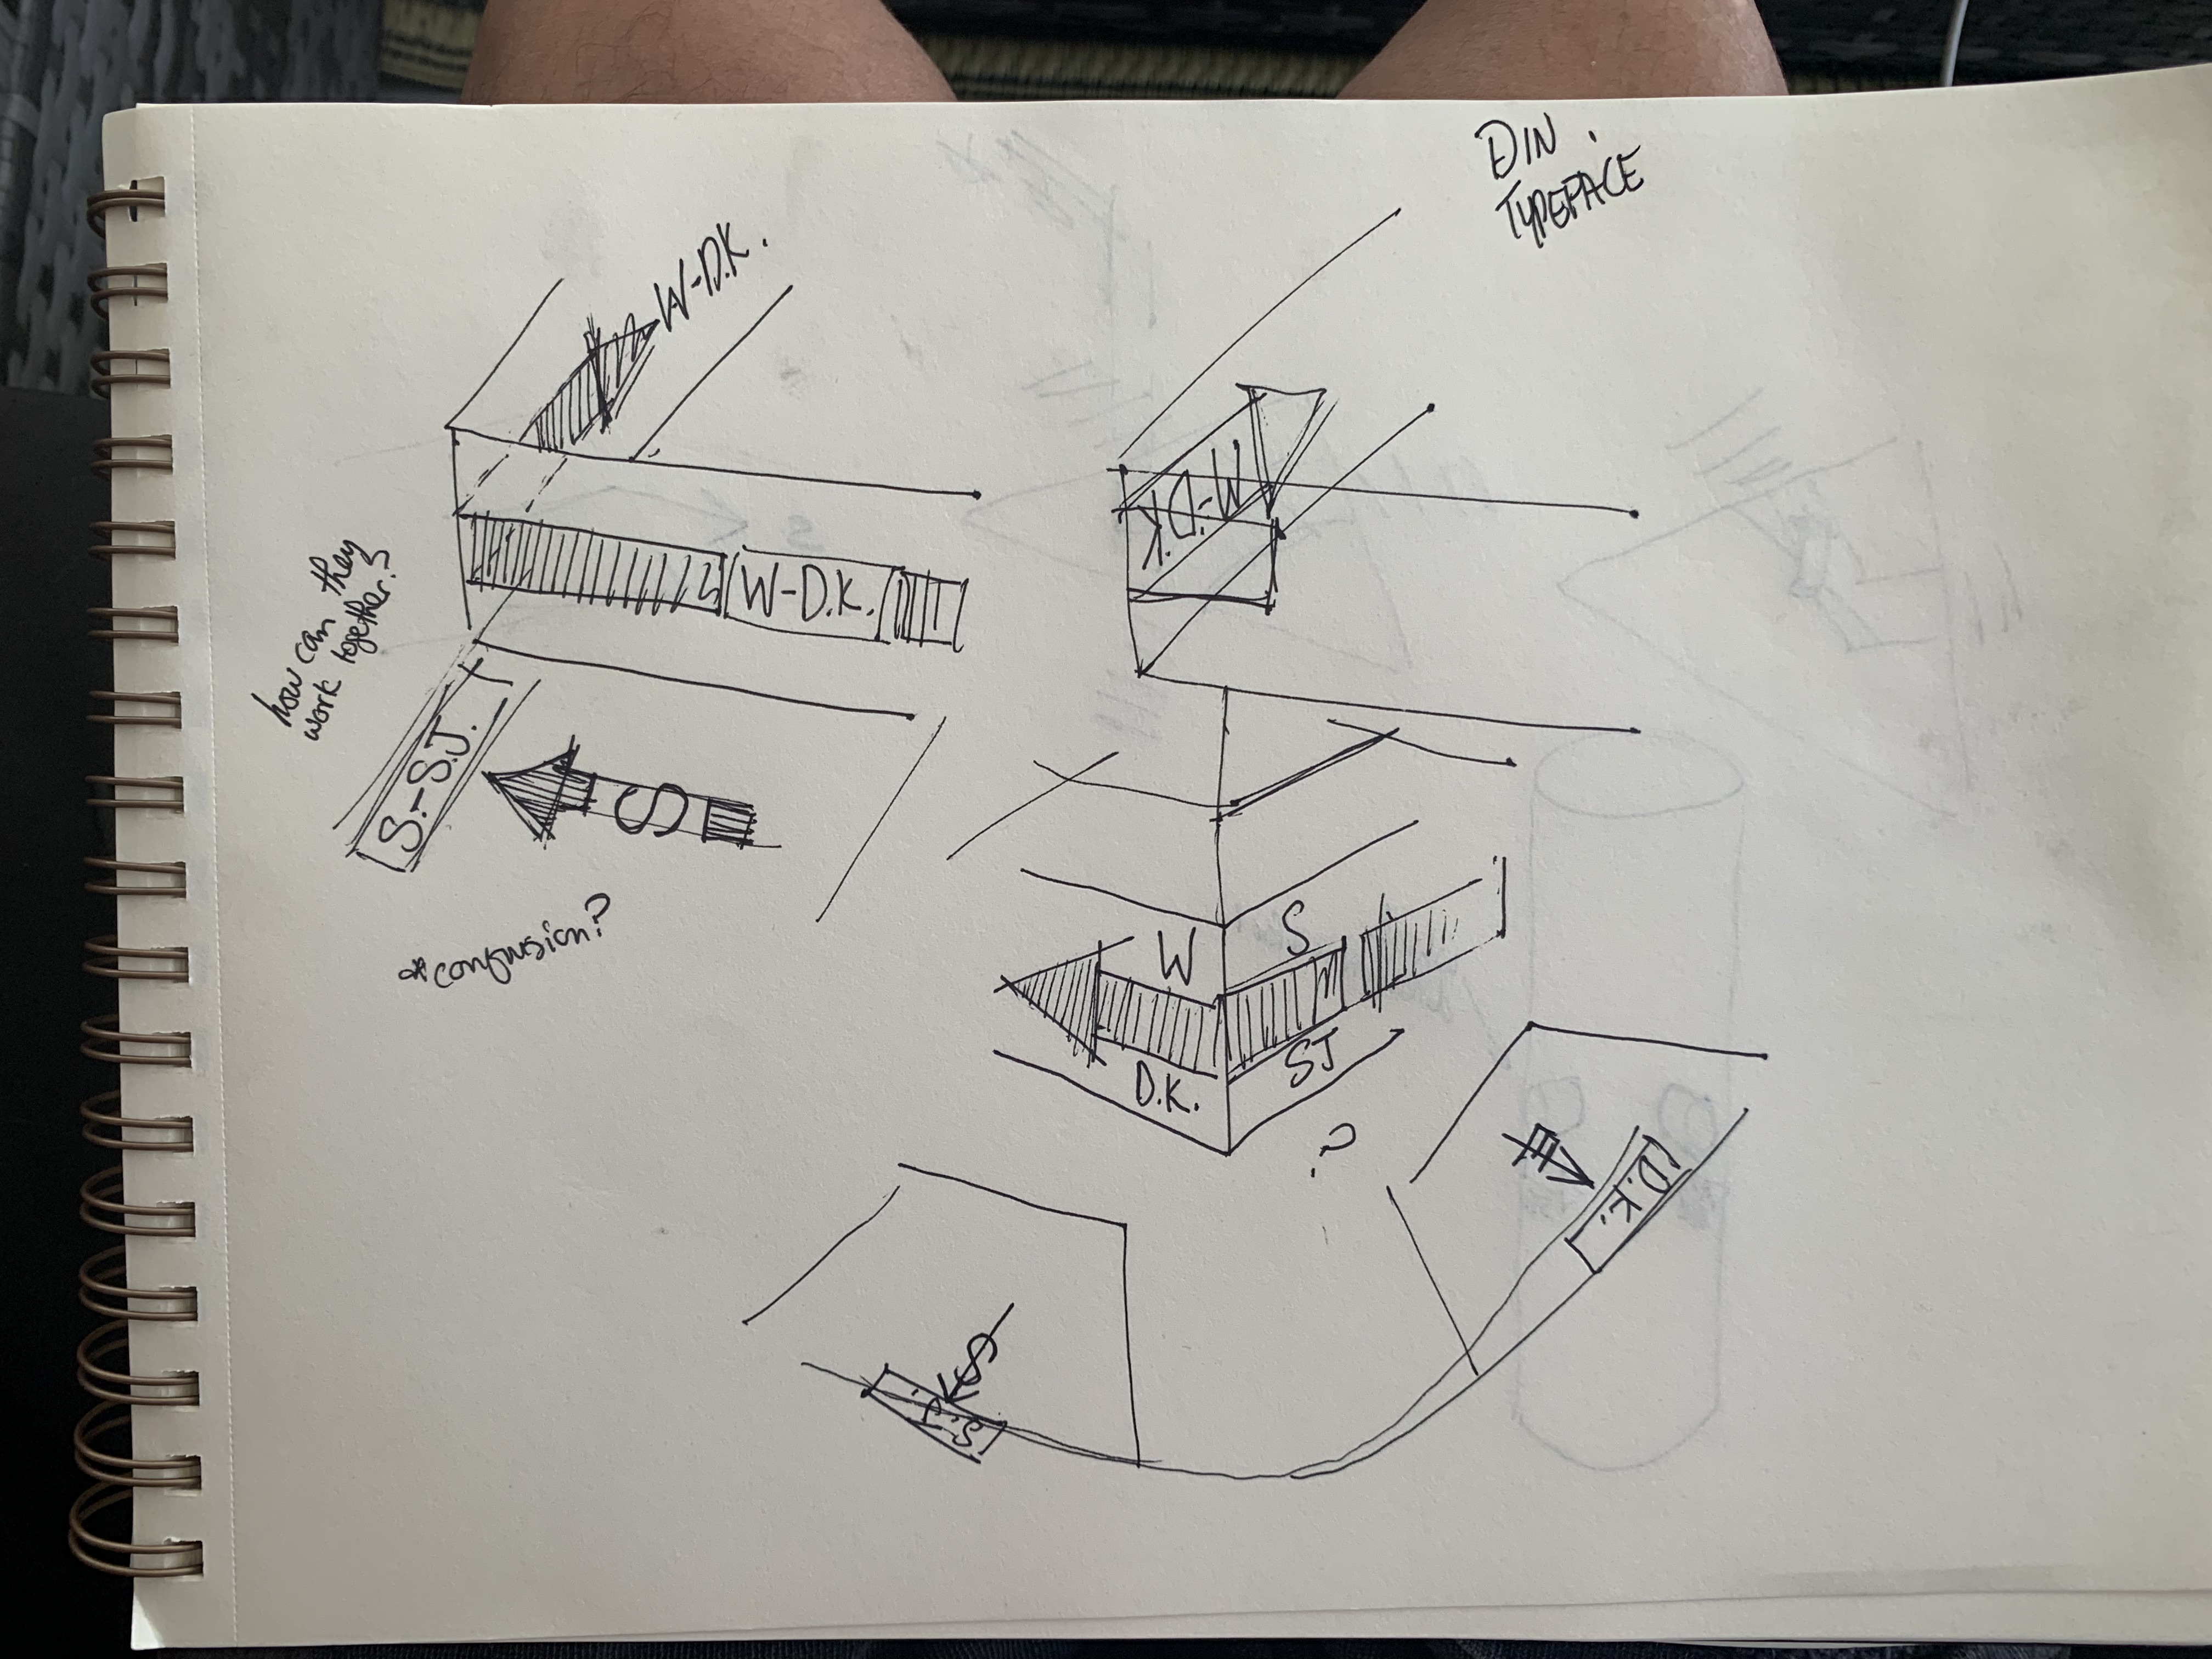 DIN.
TYPEFACE
W-D.K.
W-D.K
how can they
work together?
W-D.K.
S.-S.J.
S
*confusion?
W
S
D.K.
SJ
?
D.K.
S
S-J.